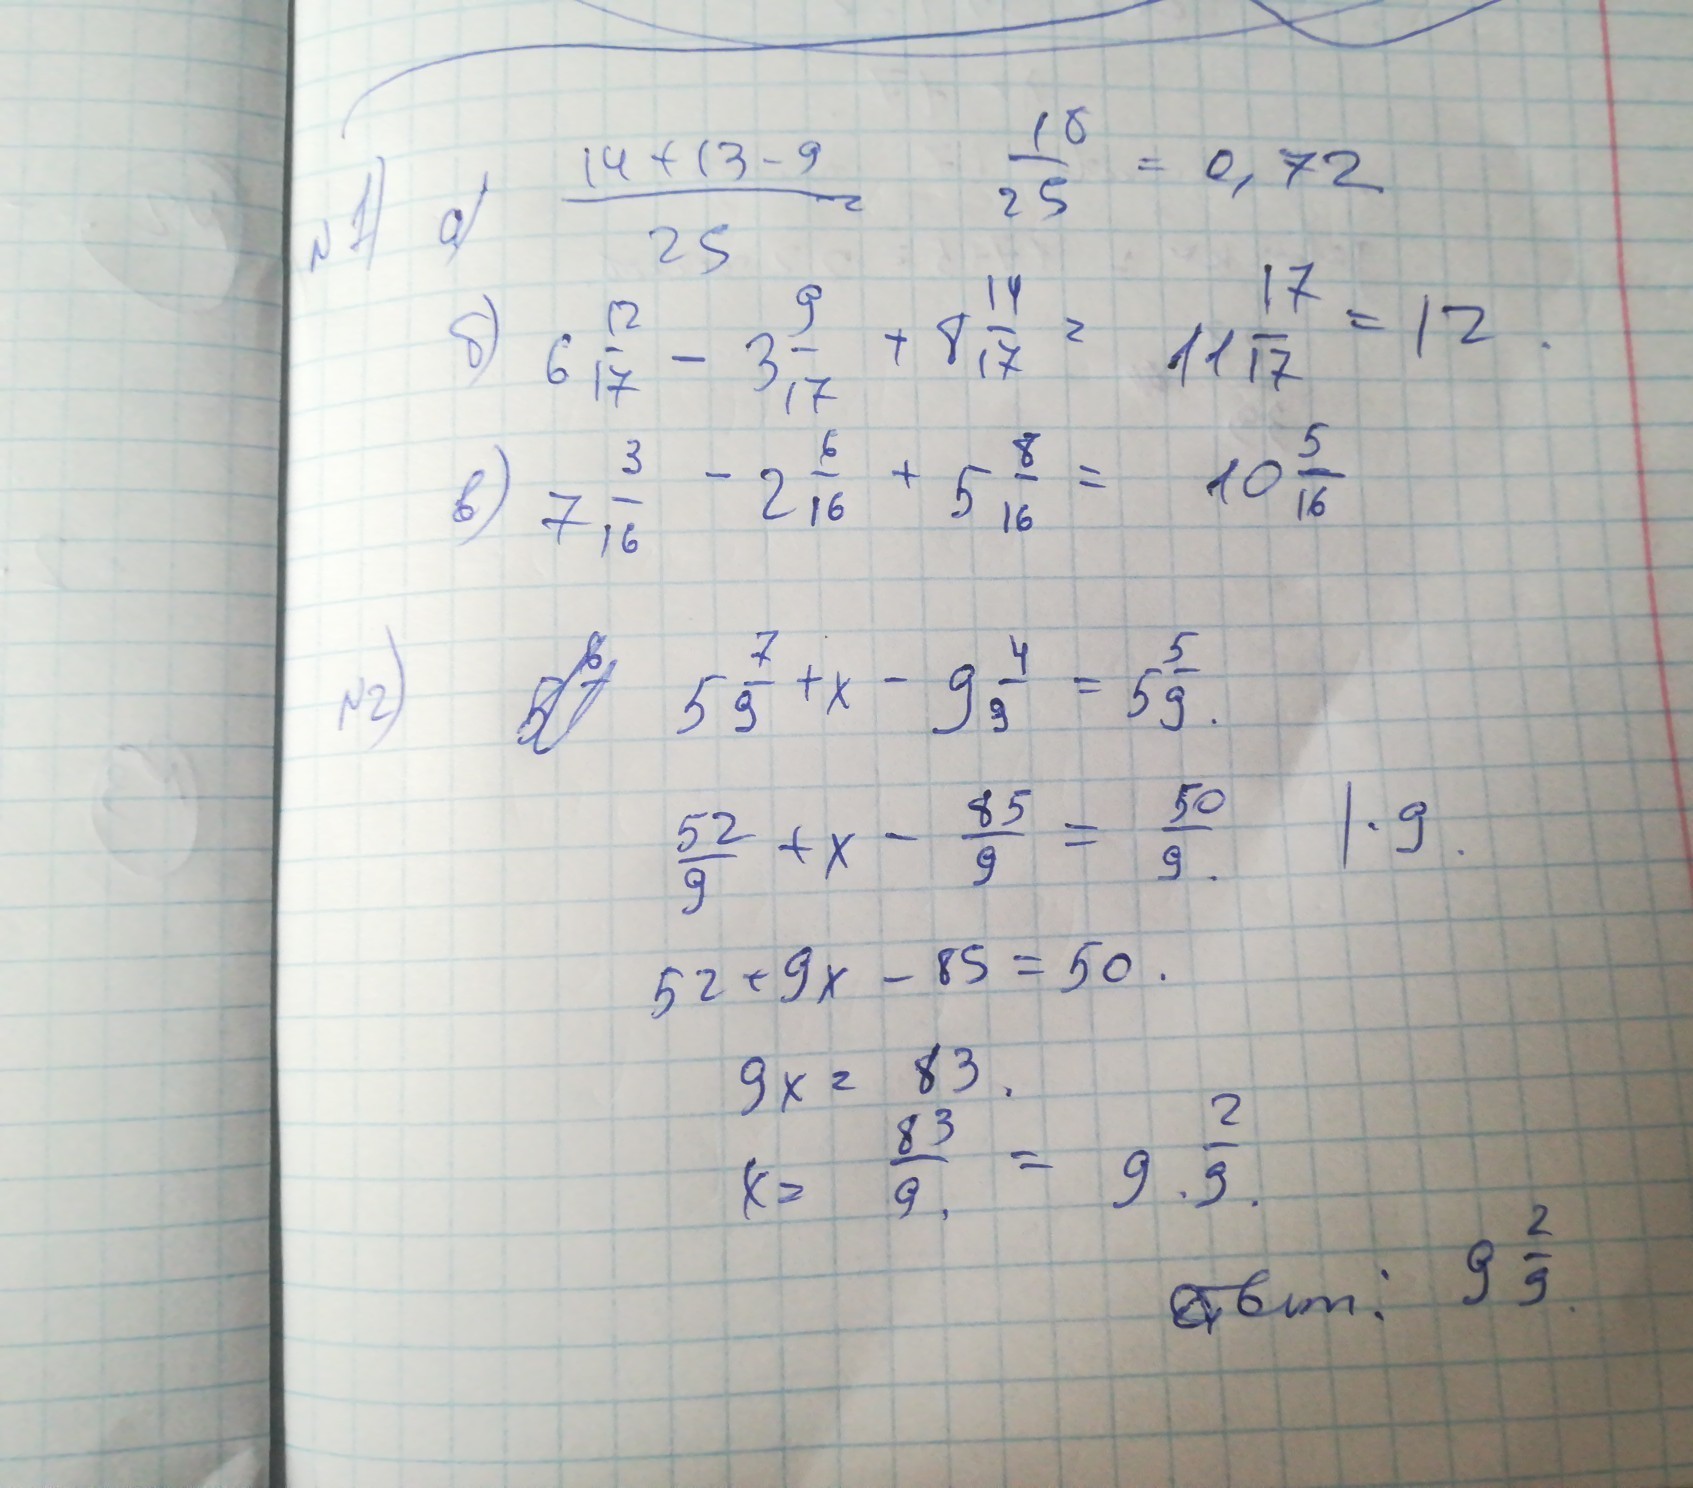 №1) а) (14+13-9)/25 = 18/25 = 0,72
б) 6 12/17 - 3 9/17 + 8 14/17 = 11 17/17 = 12.
в) 7 3/16 - 2 6/16 + 5 8/16 = 10 5/16
№2) 5 7/9 + x - 9 4/9 = 5 5/9.
52/9 + x - 85/9 = 50/9. |·9.
52+9x-85=50.
9x= 83.
x= 83/9. = 9. 2/9.
Ответ: 9 2/9.